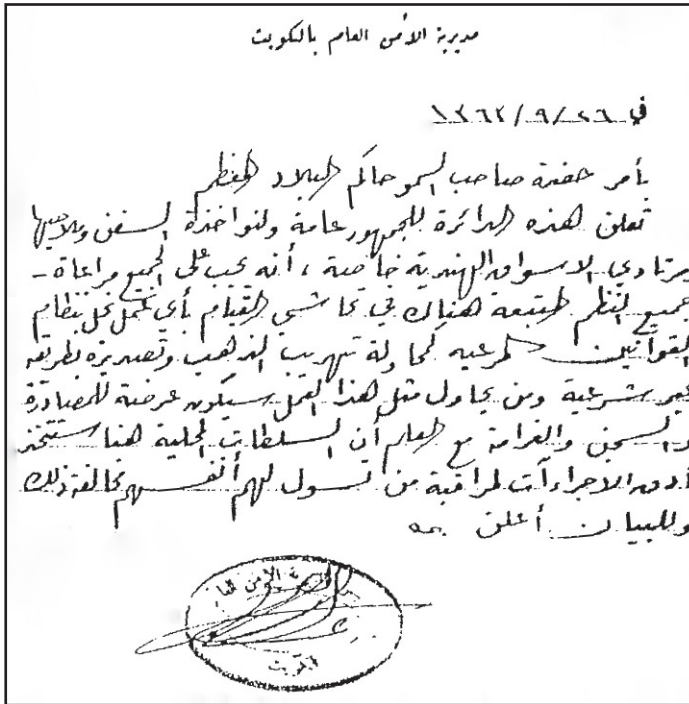 مديرية الأمن العام بالكويت
في ٢٦/٩/١٣٦٣
بأمر حضرة صاحب السمو حاكم البلاد المعظم
تعلن هذه الدائرة للجمهور عامة ولنواخذة السفن وملاحيها
ومرتادي الاسواق الهندية خاصة ، أنه يجب على الجميع مراعاة -
جميع النظم المتبعة هناك في تحاشي القيام بأي عمل يخل بنظام
القوانين المرعيه كمحاولة تهريب الذهب وتصديره بطريقة
غير شرعية ومن يحاول مثل هذا العمل سيكون عرضة للمصادرة
والسجن والغرامة مع العلم أن السلطات المحلية هنا ستتخذ
أدق الاجراءآت لمراقبة من تسول لهم أنفسهم مخالفة ذلك
وللبيان أعلن
الامن العا
الكويت